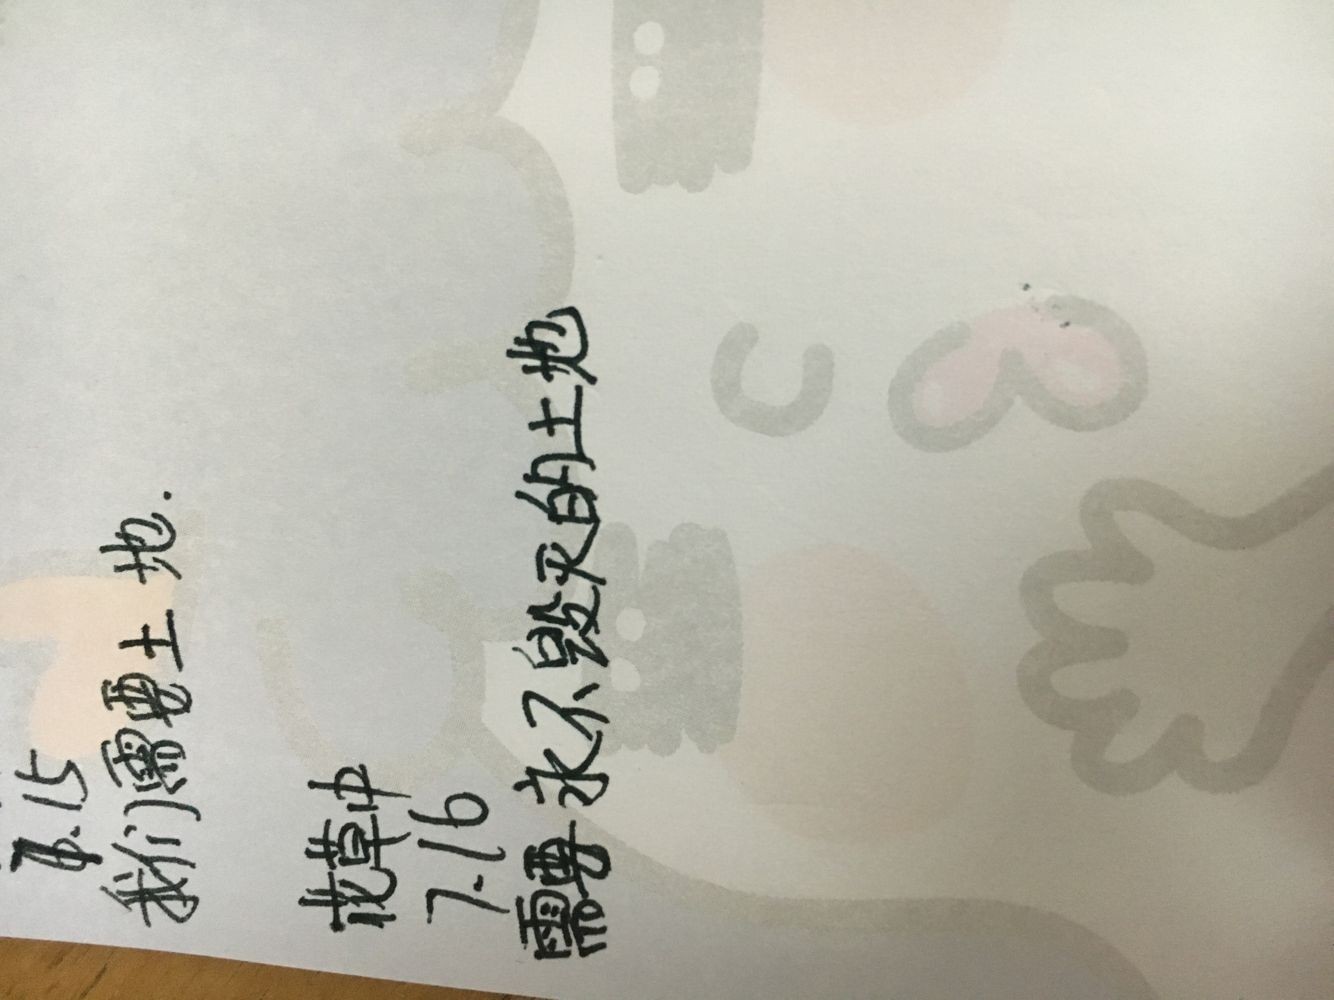 7.15
我们需要土地.
花草中
7-16
需要永不毁灭的土地